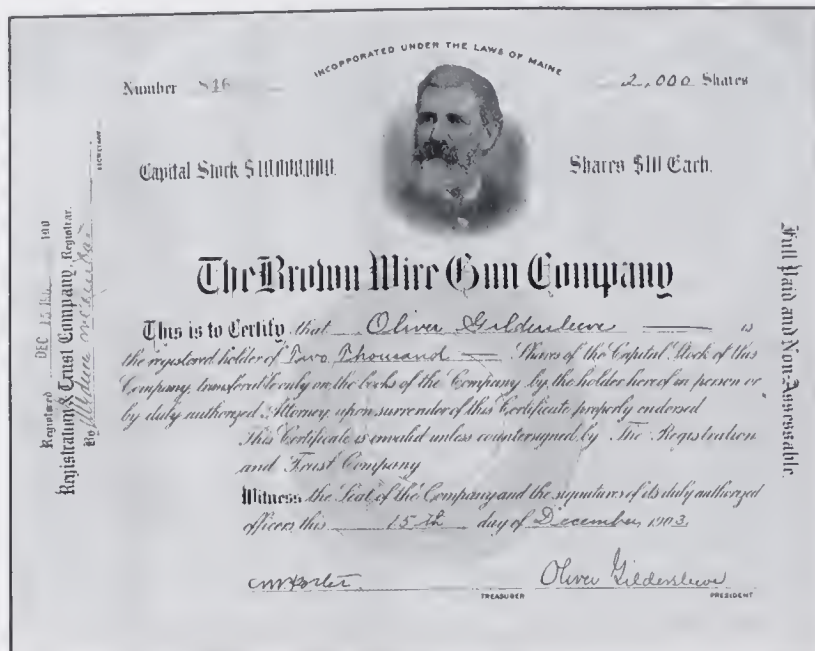 INCORPORATED UNDER THE LAWS OF MAINE
Number 816
2,000 Shares
Capital Stock $10,000,000.
Shares $10 Each.
The Brown Wire Gun Company
This is to Certify that Oliver Gildersleeve is
the registered holder of Two Thousand Shares of the Capital Stock of this
Company, transferable only on the books of the Company by the holder hereof in person or
by duly authorized Attorney upon surrender of this Certificate properly endorsed
This Certificate is invalid unless countersigned by The Registration
and Trust Company
Witness the Seal of the Company and the signatures of its duly authorized
officers this 15th day of December, 1903.
Oliver Gildersleeve
TREASURER
PRESIDENT
Registered DEC 15 190
Registration & Trust Company, Registrar.
By
SECRETARY
Full Paid and Non-Assessable.